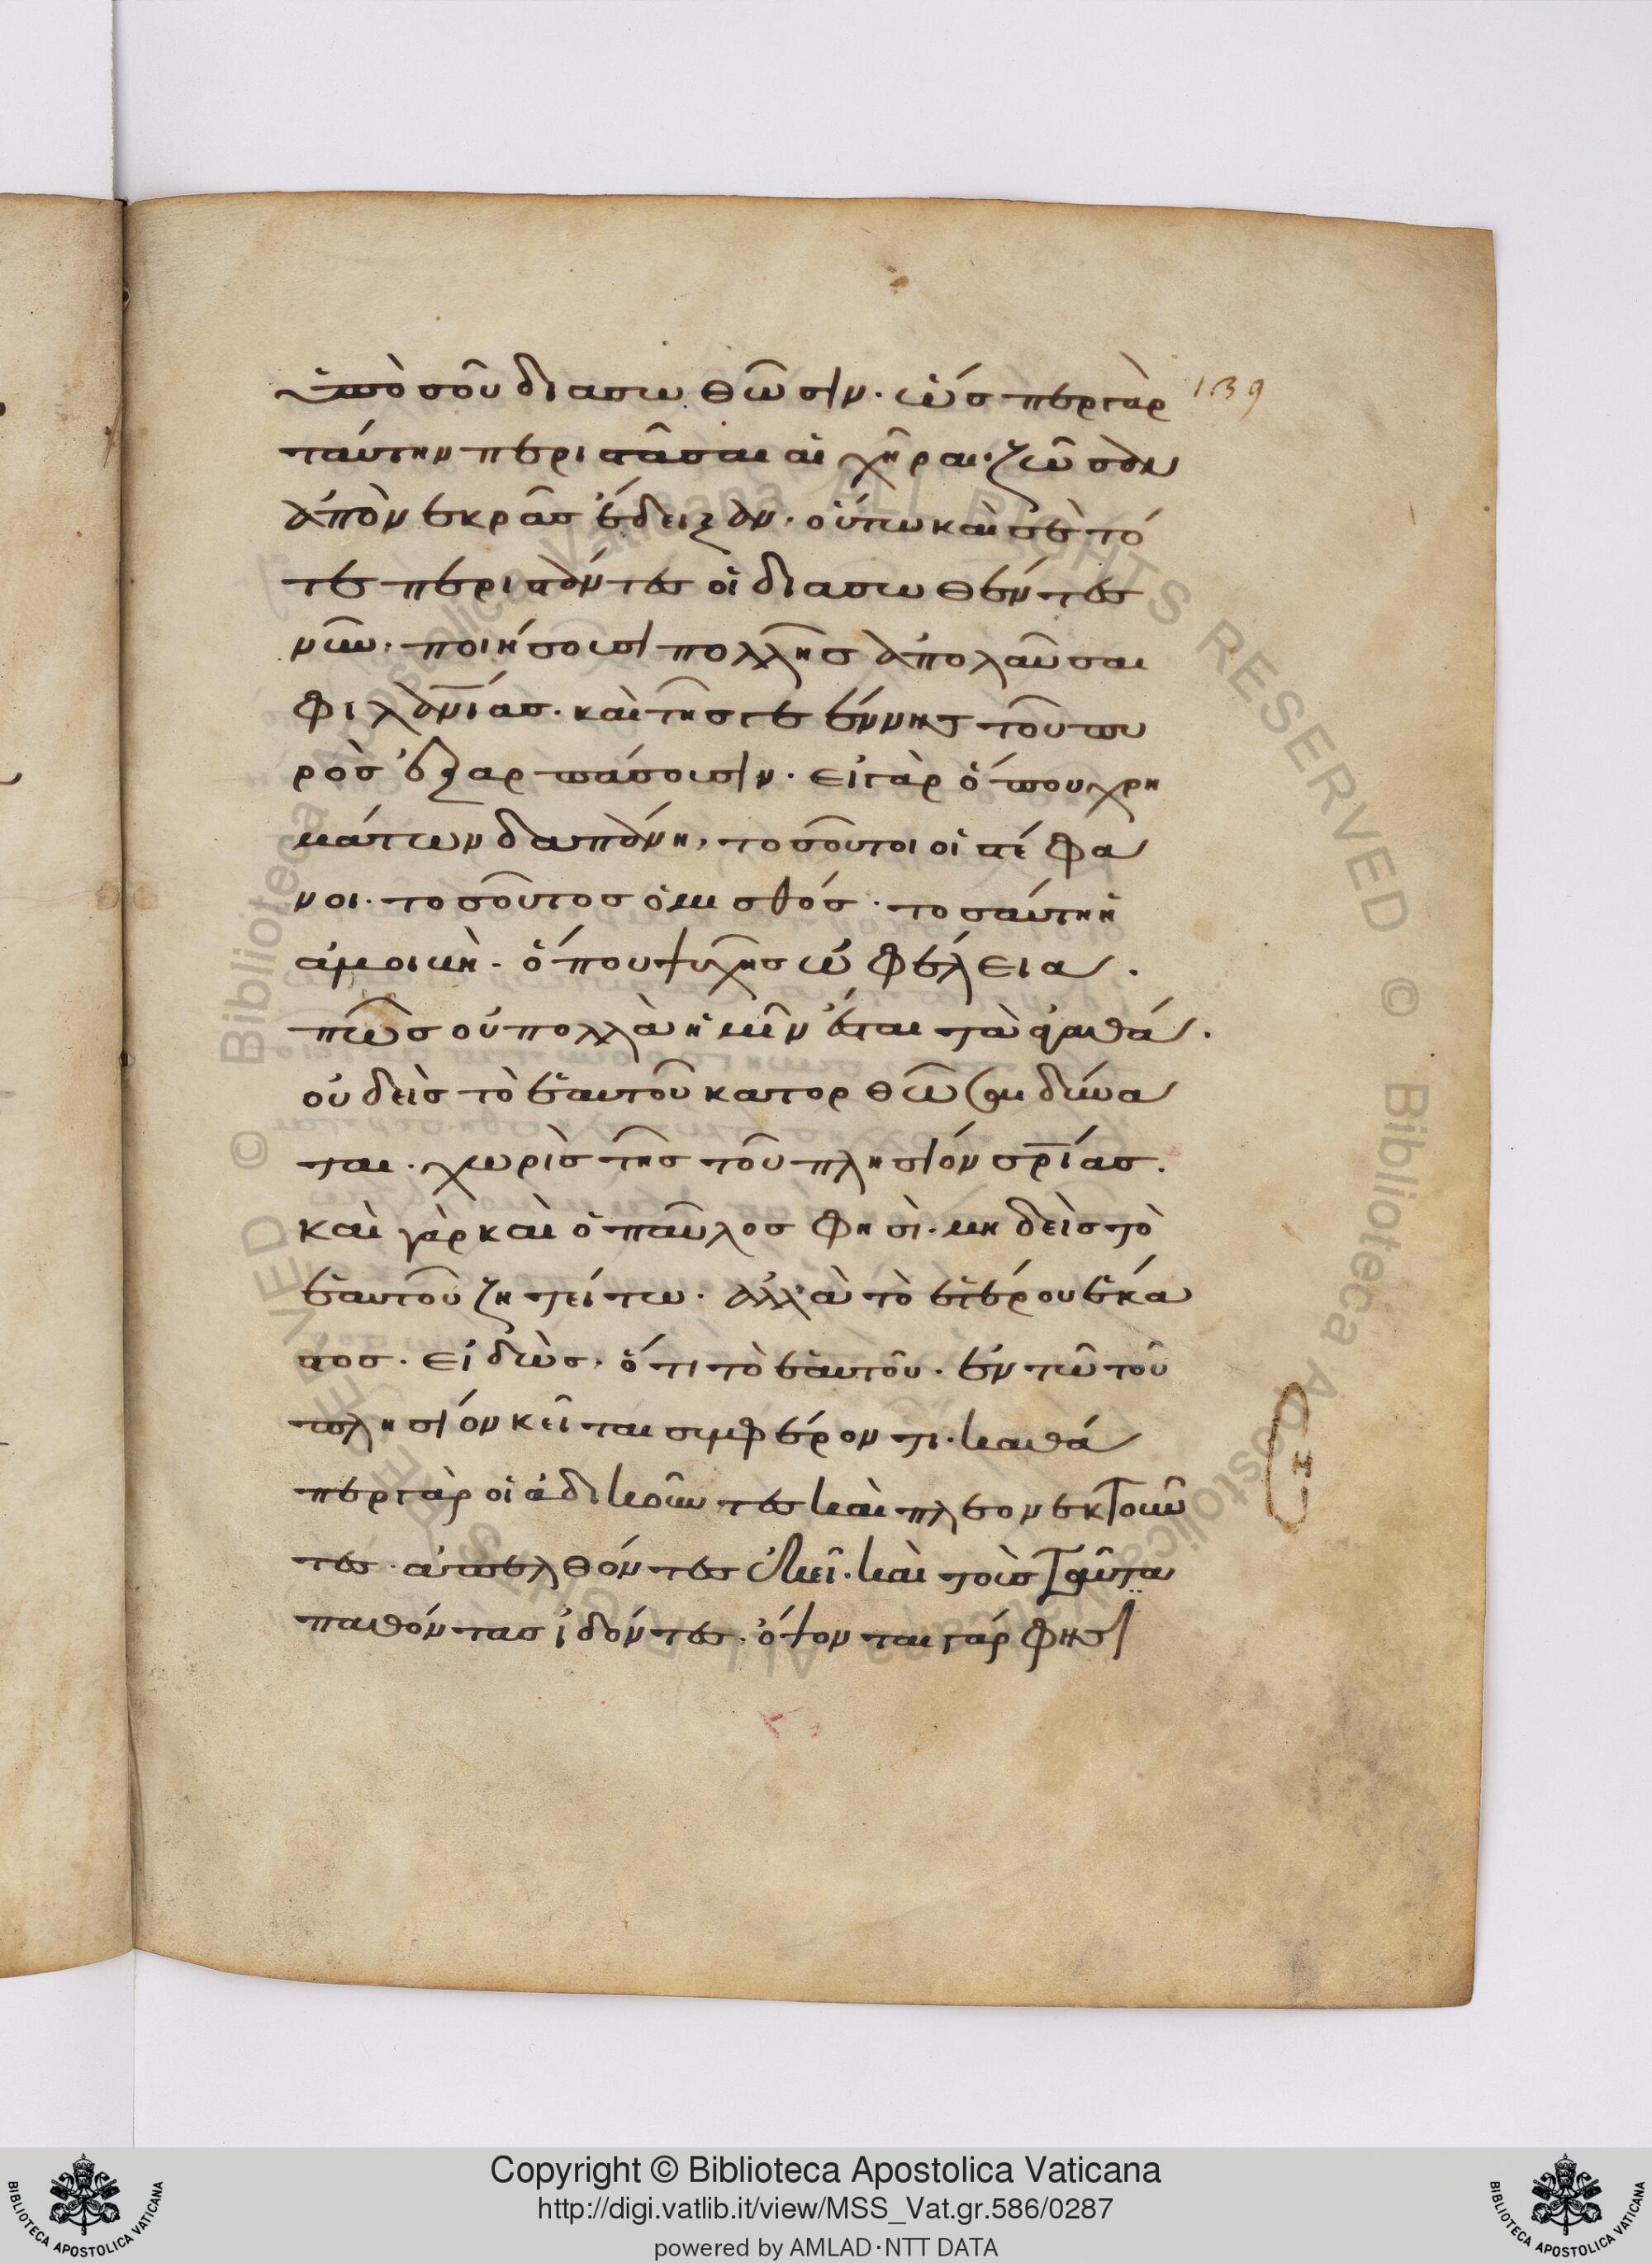 ὑπὸ σοῦ διασωθῶσιν· ὥσπερ γὰρ
139
ταύτην περιστᾶσαι αἱ χῆραι· ζῶσαν
ἀπὸ νεκρᾶς ἔδειξαν· οὕτω καὶ σὲ τό
τε περιστάντες οἱ διασωθέντες
νῦν· ποιήσουσι πολλῆς ἀπολαῦσαι
φιλανίας· καὶ τῆς γεέννης τοῦ πυ
ρὸς ἐξαρπάσουσιν· εἰ γὰρ ὅπου χρη
μάτων δαπάνη, τοσοῦτοι οἱ στέφα
νοι· τοσοῦτος ὁ μισθός· τοσαύτη ἡ
ἀμοιβὴ· ὅπου ψυχῆς ὠφέλεια·
πῶς οὐ πολλὰ ἡμῖν ἔσται τὰ ἀγαθά·
οὐδεὶς τὸ ἑαυτοῦ κατορθῶσαι δύνα
ται· χωρὶς τῆς τοῦ πλησίον σρίας·
καὶ γὰρ καὶ ὁ παῦλος φησὶ· μηδεὶς τὸ
ἑαυτοῦ ζητείτω· ἀλλὰ τὸ ἑτέρου ἕκα
στος· εἰδὼς· ὅτι τὸ ἑαυτοῦ· ἐν τῶ τοῦ
πλησίον κεῖται συμφέροντι· καθά
περ γὰρ οἱ ἀδικοῦντες καὶ πλεονεκτοῦν
τες· ἀπελθόντες ἐκεῖ· καὶ τοὺς ταῦτα
παθόντας ἰδόντες· ὄψονται γάρ φησι
Copyright © Biblioteca Apostolica Vaticana
http://digi.vatlib.it/view/MSS_Vat.gr.586/0287
powered by AMLAD·NTT DATA
BIBLIOTECA APOSTOLICA VATICANA
BIBLIOTECA APOSTOLICA VATICANA